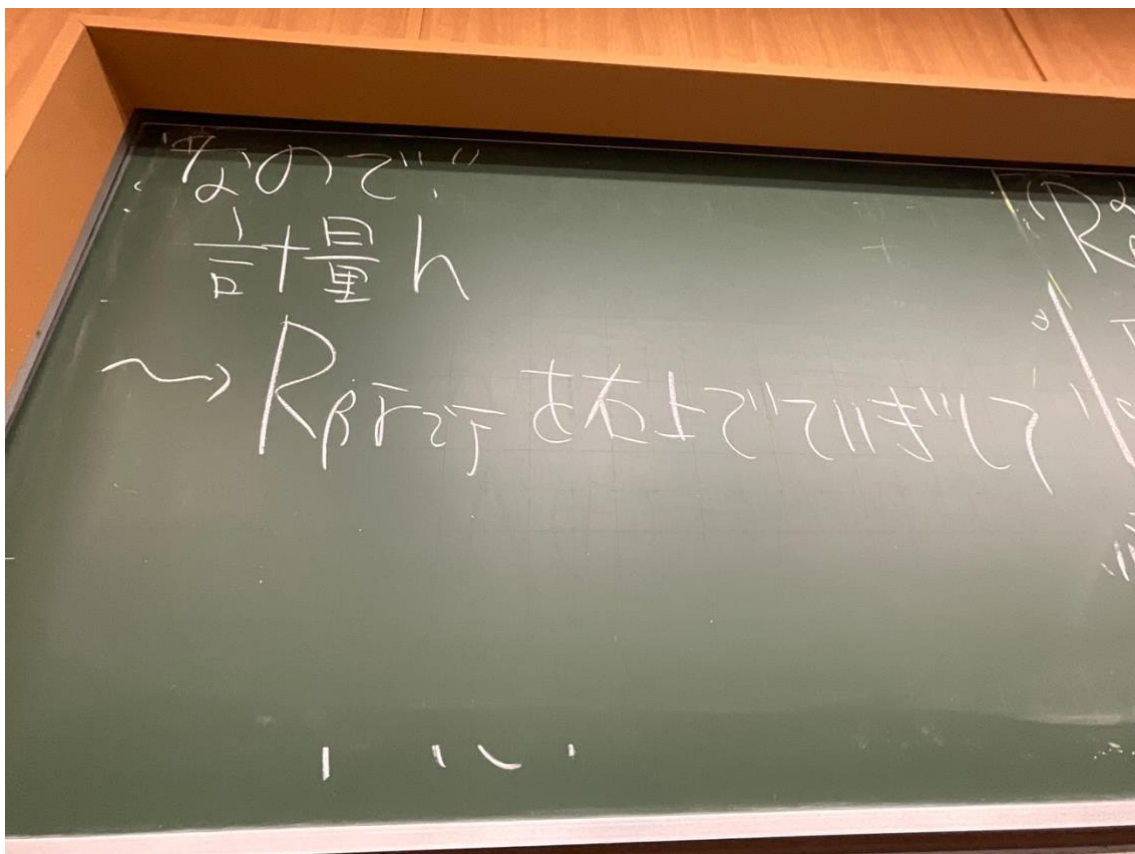 なので
計量 h
⇝ R_{β\bar{r} i\bar{j}} を右上でていぎして